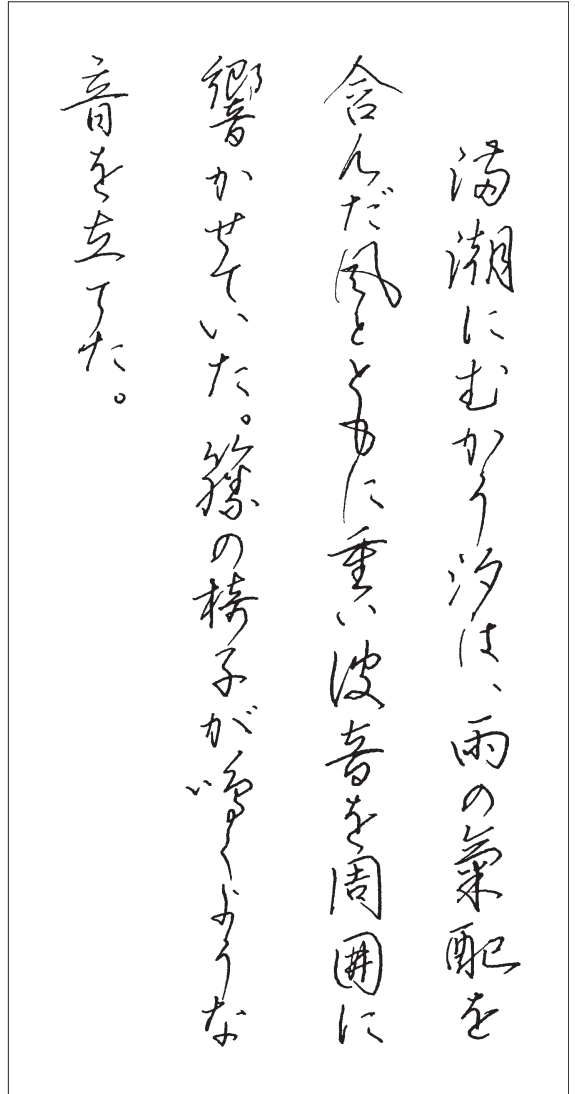 満潮にむかう汐は、雨の氣配を
含んだ風とともに重い波音を周囲に
響かせていた。籐の椅子が鳴くような
音を立てた。